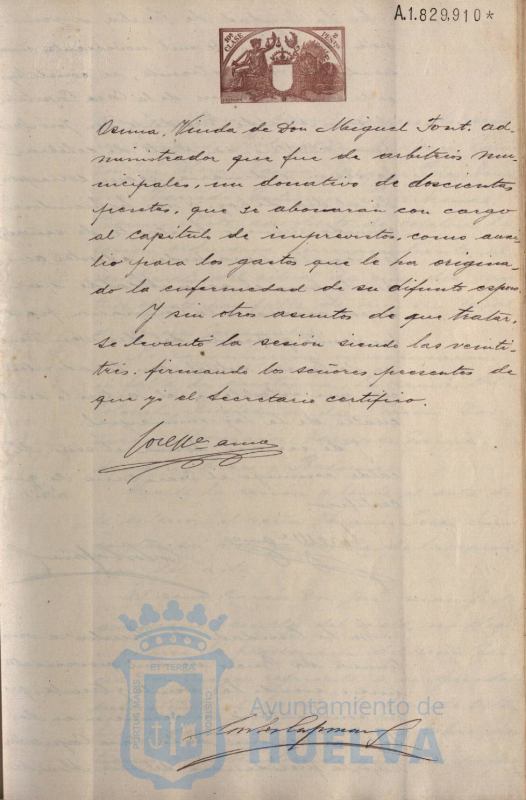 A.1.829,910*
10ª CLASE
Osuna, Viuda de Don Miguel Font, ad-
ministrador que fue de arbitrios mu-
nicipales, un donativo de doscientas
pesetas, que se abonarán con cargo
al capítulo de imprevistos, como auxi-
lio para los gastos que le ha origina-
do la enfermedad de su difunto esposo.
Y sin otros asuntos de que tratar,
se levantó la sesión siendo las veinti-
trés, firmando los señores presentes de
que yo el Secretario certifico.
ET TERRA
PORTUS MARIS
CUSTODIA
Ayuntamiento de
HUELVA